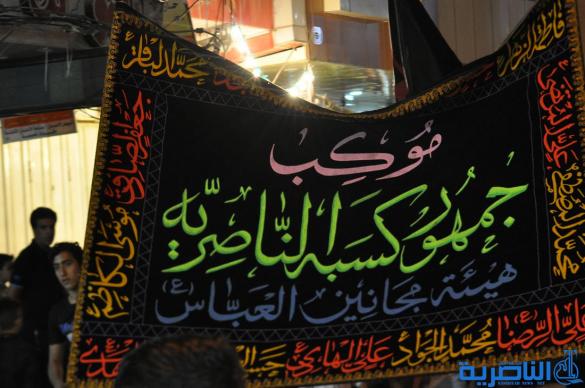 موكب
جمهور كسبة الناصرية
هيئة مجانين العباس (ع)
فاطمة الزهراء
محمد الباقر
جعفر الصادق
موسى الكاظم
علي الرضا
محمد الجواد
علي الهادي
الناصرية